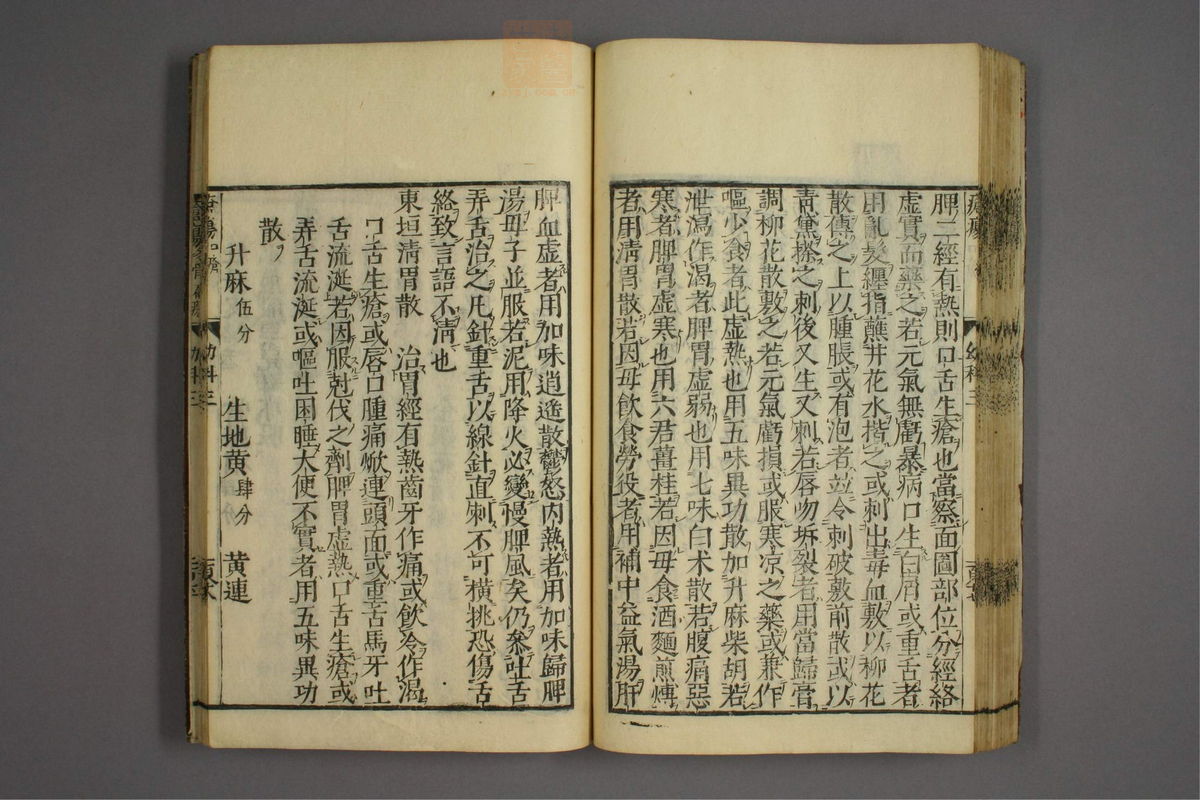 脾三經有熱則口舌生瘡也當察面圖部位分經絡
虛實而藥之若元氣無虧暴病口生白屑或重舌者
用亂髮纏指蘸井花水揩之或刺出毒血敷以柳花
散傅之上以腫脹或有泡者並令刺破敷前散或以
青黛摻之刺後又生又刺若唇吻坼裂者用當歸膏
調柳花散敷之若元氣虧損或服寒凉之藥或兼作
嘔少食者此虛熱也用五味異功散加升麻柴胡若
泄瀉作渴者脾胃虛弱也用七味白术散若腹痛惡
寒者脾胃虛寒也用六君薑桂若因母食酒麵煎煿
者用清胃散若因母飲食勞役者用補中益氣湯肝
脾血虛者用加味逍遙散鬱怒内熱者用加味歸脾
湯母子並服若泥用降火必變慢脾風矣仍叅吐舌
弄舌治之凡針重舌以線針直刺不可橫挑恐傷舌
絡致言語不清也
東垣清胃散 治胃經有熱齒牙作痛或飲冷作渴
口舌生瘡或唇口腫痛焮連頭面或重舌馬牙吐
舌流涎若因服尅伐之劑脾胃虛熱口舌生瘡或
弄舌流涎或嘔吐困睡大便不實者用五味異功
散
升麻伍分 生地黄肆分 黄連
幼科三